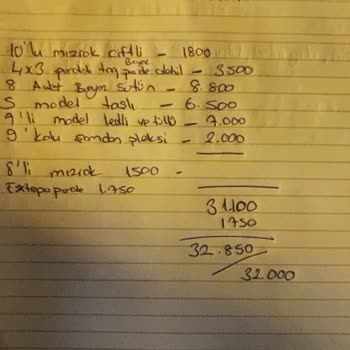 10'lu mızrak çiftli - 1800
4x3 perdeli taç Beyaz perde dahil - 3500
8 Adet Beyaz Sütün - 8.800
S model taslı - 6.500
9'li model ledli ve tüllü - 7.000
9' kolu şamdan pleksi - 2.000
8'li mızrak 1500 -
Extapo perde 1.750
31.100
1750
32.850
32.000